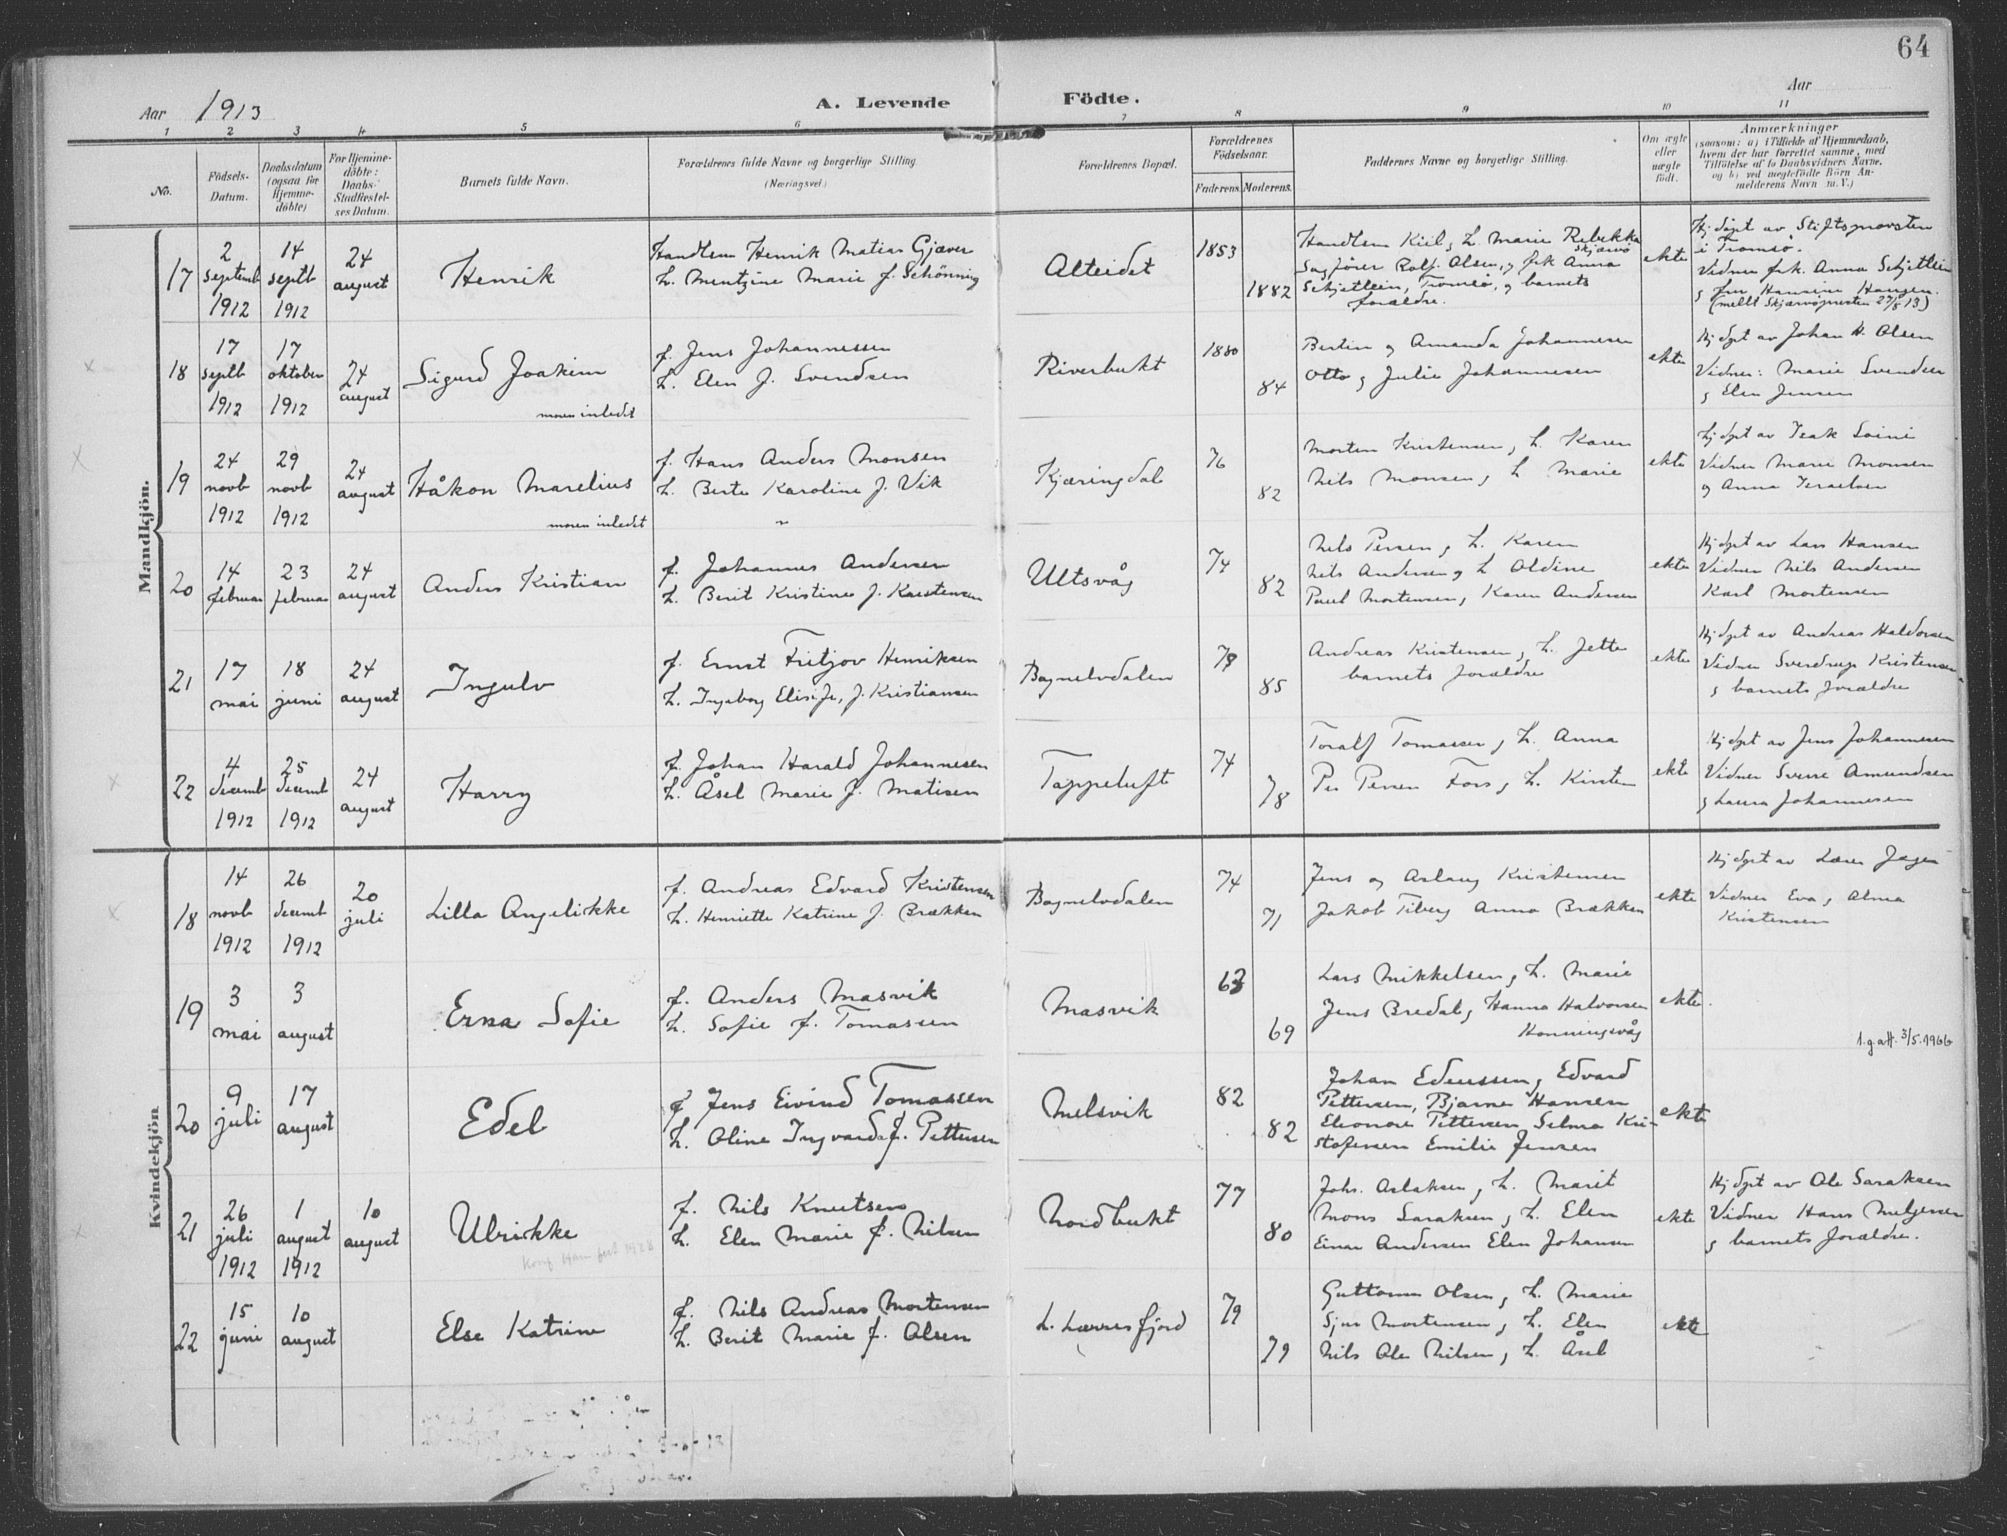 64
Aar 1913
A. Levende Födte.
Aar
1 2 3 4 5 6 7 8 9 10 11
No.
Födsels-Datum.
Daabsdatum (ogsaa for Hjemme-döbte)
For Hjemme-döbte: Daabs-Stadfæstel-ses Datum.
Barnets fulde Navn.
Forældrenes fulde Navne og borgerlige Stilling (Næringsvei.)
Forældrenes Bopæl.
Forældrenes Födselsaar.
Faderens. Moderens.
Faddernes Navne og borgerlige Stilling.
Om ægte eller uægte födt.
Anmærkninger
(saasom: a) i Tilfælde af Hjemmedaab,
hvem der har forrettet samme, med
Tilföielse af to Daabsvidners Navne,
og b) ved uegtefödte Börn An-
melderens Navn m. V.)
Mandkjön.
17
2 septemb 1912
14 septb 1912
24 august
Henrik
Handlsm Henrik Matias Gjæver
h. Mentzine Marie f. Schönning
Alteidet
1853
1882
Handlsm Kiil, h. Marie Rebekka
Skjærvö
Sagförer Rolf Olsen, og frk Anna
Schjetlein, Tromsö, og barnets
forældre.
ekte
Hj döpt av Stiftsprovsten
i Tromsö.
Vidner frk. Anna Schjetlein
g fru Hansine Haugen.
(meldt Skjærvöpresten 27/8 13)
18
17 septb 1912
17 oktober 1912
24 august
Sigurd Joakim
moren inledet
f. Jens Johannessen
h. Elen f. Svendsen
Riverbukt
1880
84
Bertin og Amanda Johannesen
Otto g Julie Johannesen
ekte
Hj döpt av Johan H. Olsen
Vidner: Marie Svendsen
g Elen Jensen
19
24 novb 1912
29 novb 1912
24 august
Håkon Marelius
moren inledet
f. Hans Anders Monsen
h. Berte Karoline f. Vik
"
Kjæringdal
76
82
Morten Kristensen, h. Karen
Nils Monsen, h Marie
ekte
Hj döpt av Isak Soini
Vidner Marie Monsen
og Anna Israelsen
20
14 februar
23 februar
24 august
Anders Kristian
f. Johannes Andersen
h. Berit Kristine f. Karstensen
Ultsvåg
74
82
Nils Persen, h. Karen
Nils Andersen g h Oldine
Paul Mortensen, Karen Andersen
ekte
Hj döpt av Lars Hansen
Vidner Nils Andersen
Karl Mortensen
21
17 mai
18 juni
24 august
Ingulv
f. Ernst Fritjov Henriksen
h. Ingeborg f. Kristiansen
Bognelvdalen
85
Andreas Kristensen, h. Jette
barnets forældre
ekte
Hj döpt av Andreas Haldorsen
Vidner Sverdrup Kristensen
g barnets forældre
22
4 decemb 1912
25 decemb 1912
24 august
Harry
f. Johan Harald Johannesen
h. Åsel Marie f. Matisen
Tappeluft
74
78
Toralf Tomassen, h. Anna
Per Persen Fors, h. Kirsten
ekte
Hj döpt av Jens Johannesen
Vidner Sverre Amundsen
g Laura Johannesen
Kvindekjön
18
14 novb 1912
26 decemb 1912
20 juli
Lilla Angelikke
f. Andreas Edvard Kristensen
h. Henriette Katrine f. Brækken
Bognelvdalen
74
71
Jens og Aslaug Kristensen
Jakob Tiberg Anna Brækken
ekte
Hj döpt av Lærer
Vidner Eva g Alma
Kristensen
19
3 mai
3 august
Erna Sofie
f. Anders Masvik
h. Sofie f. Tomassen
Masvik
63
69
Lars Mikkelsen, h. Marie
Jens Bredal, Hanna Halvorsen
Honningsvåg
ekte
1.g.att. 3/5.1966
20
9 juli
17 august
Edel
f Jens Eivind Tomassen
h. Oline Ingvarda f. Pettersen
Melsvik
82
82
Johan Edvard
Pettersen, Bjarne Hansen
Eleonore Pettersen Selma Kri-
stofersen Emilie Jensen
ekte
21
26 juli 1912
1 august 1912
10 august
Ulrikke
Konf Ham 1928
f. Nils Knutsen
h. Elen Marie f. Nilsen
Nordbukt
77
80
Johs. Aslaksen, h. Marit
Mons Saraksen, h. Elen
Einar Andersen Elen Johansen
ekte
Hj döpt av Ole Saraksen
Vidner Hans
g barnets forældre.
22
15 juni
10 august
Else Katrine
f. Nils Andreas Mortensen
h. Berit Marie f. Olsen
L. Lerresfjord
79
79
Guttorm Olsen, h. Marie
Sjur Mortensen, h. Elen
Nils Ole Nilsen, h. Åsel
ekte